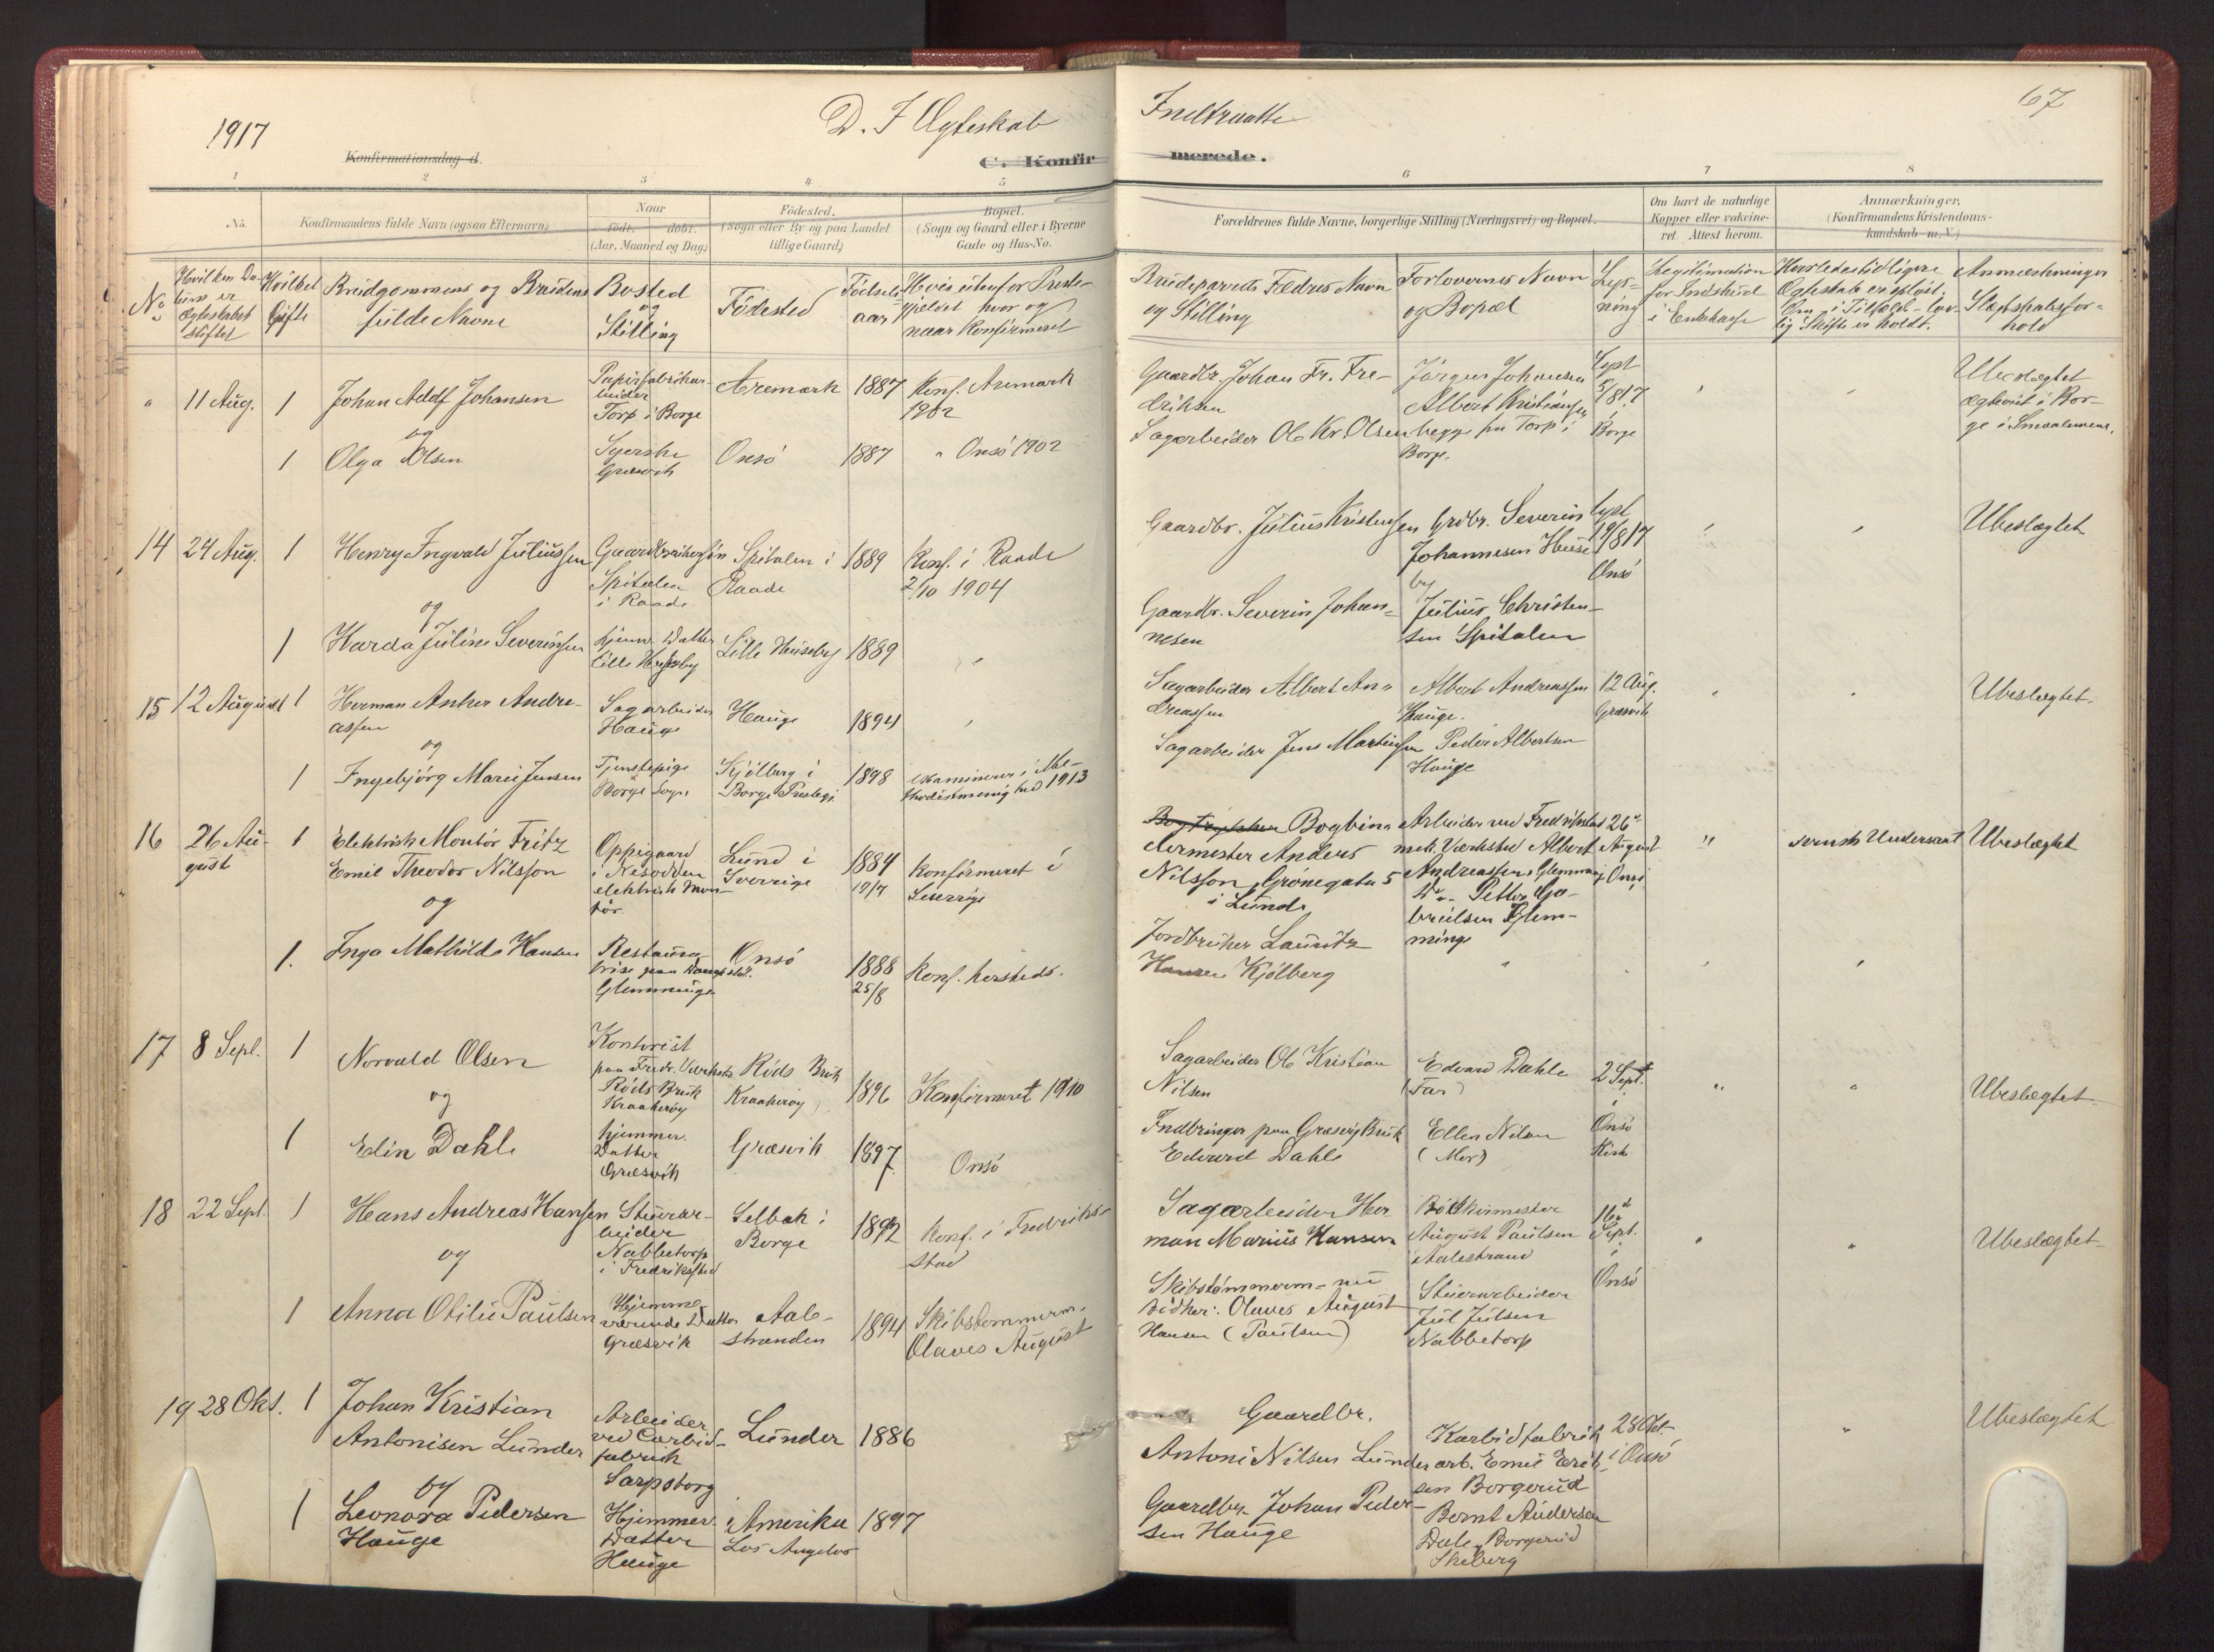 1917
D. I Ægteskab
Indtraatte
67
Konfirmationsdag d.
C. Konfirmerede.
1 2 3 4 5 6 7 8
No.
Konfirmandens fulde Navn (ogsaa Efternavn)
Naar
født. døbt.
(Aar, Maaned og Dag)
Fødested.
(Sogn eller By og paa Landet
tillige Gaard)
Bopæl.
(Sogn og Gaard eller i Byerne
Gade og Hus-No.
Forældrenes fulde Navne, borgerlige Stilling (Næringsvei) og Bopæl.
Om havt de naturlige
Kopper eller vakcineret.
Attest herom.
Anmærkninger.
(Konfirmandens Kristendoms-
kundskab m. V.)
No
Hvilken Da-
tum er
Ægteskabet
stiftet
Hvilket
Gifte
Brudgommens og Brudens
fulde Navne
Bosted
og
Stilling
Fødested
Fødsels-
aar
Hvis utenfor Preste-
gjeldet hvor og
naar Konfirmeret
Brudeparrets Fædres Navn
og Stilling
Forlovernes Navn
og Bopæl
Lys-
ning
Legitimation
for Indskud
i Enkekasse
Hvorledes tidligere
Ægteskab er opløst.
Om i Tilfæld. lov-
lig Skifte er holdt.
Anmerkninger
Slegtskabsfor-
hold
" 11 Aug. 1
Johan Adolf Johansen
Papirfabrikar-
beider
Torp i Borge
Aremark 1887
Konf. Aremark
1902
Gaardbr. Johan Fr. Fre-
driksen
Jørgen Johansen
Albert Kristiansen
begge fra Torp i
Borge.
Lyst
5/8 17
i
Borge
Ubeslægtet
Ægteviet i Bor-
ge i Smaalenene.
og
1 Olga Olsen
Syerske
Græsvik
Onsö 1887
" Onsö 1902
Sagarbeider Ole Kr. Olsen
14 24 Aug. 1
Henry Ingvald Juliussen
Gaardbrukersøn
Spitalen
i Raade
Spitalen i
Raade
1889
Konf. i Raade
2/10 1904
Gaardbr. Julius Kristensen
Grdbr. Severin
Johannesen Huse-
by
Lyst
19/8 17
Onsö
Ubeslægtet
og
1 Harda Juline Severinsen
hjemv. Datter
Lille Huseby
Lille Huseby 1889
Gaardbr. Severin Johan-
nesen
Julius Christen-
sen Spitalen
15 12 August 1
Herman Anker Andre-
assen
Sagarbeider
Hauge
Hauge 1894
Sagarbeider Albert An-
dreassen
Albert Andreassen
Hauge.
12 Aug.
Græsvik
Ubeslægtet.
og
1 Ingebjörg Marie Jensen
Tjenstepige
Borge Sogn
Kjölberg i
Borge Prestegj.
1898
examineres i Me-
thodistmenighed 1913
Sagarbeider Jens Martinsen
Peder Albertsen
Hauge
16 26 Au-
gust 1
Elektrisk Montör Fritz
Emil Theodor Nilsson
Oppegaard
i Nesodden
elektrisk Mon-
tör
Lund i
Sverrige
1884
17/7
Konfirmeret i
Sverrige
Bogbin-
dermester Anders
Nilsson, Grönegata 5
i Lund
Arbeider ved Fredrikstad
mek. Værksted Albert
Andreassen, Glemminge
Do. Petter Ga-
brielsen Glem-
minge
26de
August
i Onsö
"
svensk Undersaat
Ubeslægtet
og
1. Inga Mathilde Hansen
Restaura-
trise paa
Glemminge
Onsö
1888
25/8
Konf. hersteds.
Jordbruker Lauritz
Hansen Kjölberg
17 8 Sept. 1
Norvald Olsen
Kontorist
paa Fredr. Værksted
Röds Bruk
Kraakeröy
Röds Bruk
Kraakeröy
1896
Konfirmeret 1910
Sagarbeider Ole Kristian
Nilsen
Edvard Dahle
(Far)
2 Sept.
i
Onsö
Kirke
Ubeslegtet
og
1 Elin Dahle
hjemmev.
Datter
Græsvik
Græsvik 1897
Onsö
Indbringer paa Græsvig Bruk
Edvard Dahle
Ellen Nilsen
(Mor)
18 22 Sept. 1
Hans Andreas Hansen
Stuerar-
beider
Nabbetorp
i Fredrikstad
Selbak i
Borge
1892
Konf. i Fredrik-
stad
Sagarbeider Her-
man Marius Hansen
Bödkermester
August Paulsen
Aalestrand
16de
Sept.
i
Onsö
Ubeslægtet
og
1 Anna Otilie Paulsen
Hjemme-
værende Datter
Græsvik
Aale-
stranden
1894
Skibstømmerm.
Olaves August
Skibstömmerm. nu
Bödker: Olaves August
Hansen (Paulsen)
Stuerarbeider
Jul Julsen
Nabbetorp
19 28 Okt. 1
Johan Kristian
Antonisen Lunder
Arbeider
ved Carbid-
fabrik
Sarpsborg
Lunder 1886
Gaardbr.
Antoni Nilsen Lunder
Karbidfabrik
arb. Emil Erik-
sen Borgerud
28 Okt.
i Onsö
Ubeslægtet
og
1 Leonora Pedersen
Hauge
Hjemmev.
Datter
Hauge
i Amerika
Los Angelos
1897
Gaardbr. Johan Peder-
sen Hauge
Bernt Andersen
Dale, Borgerud
Skeberg